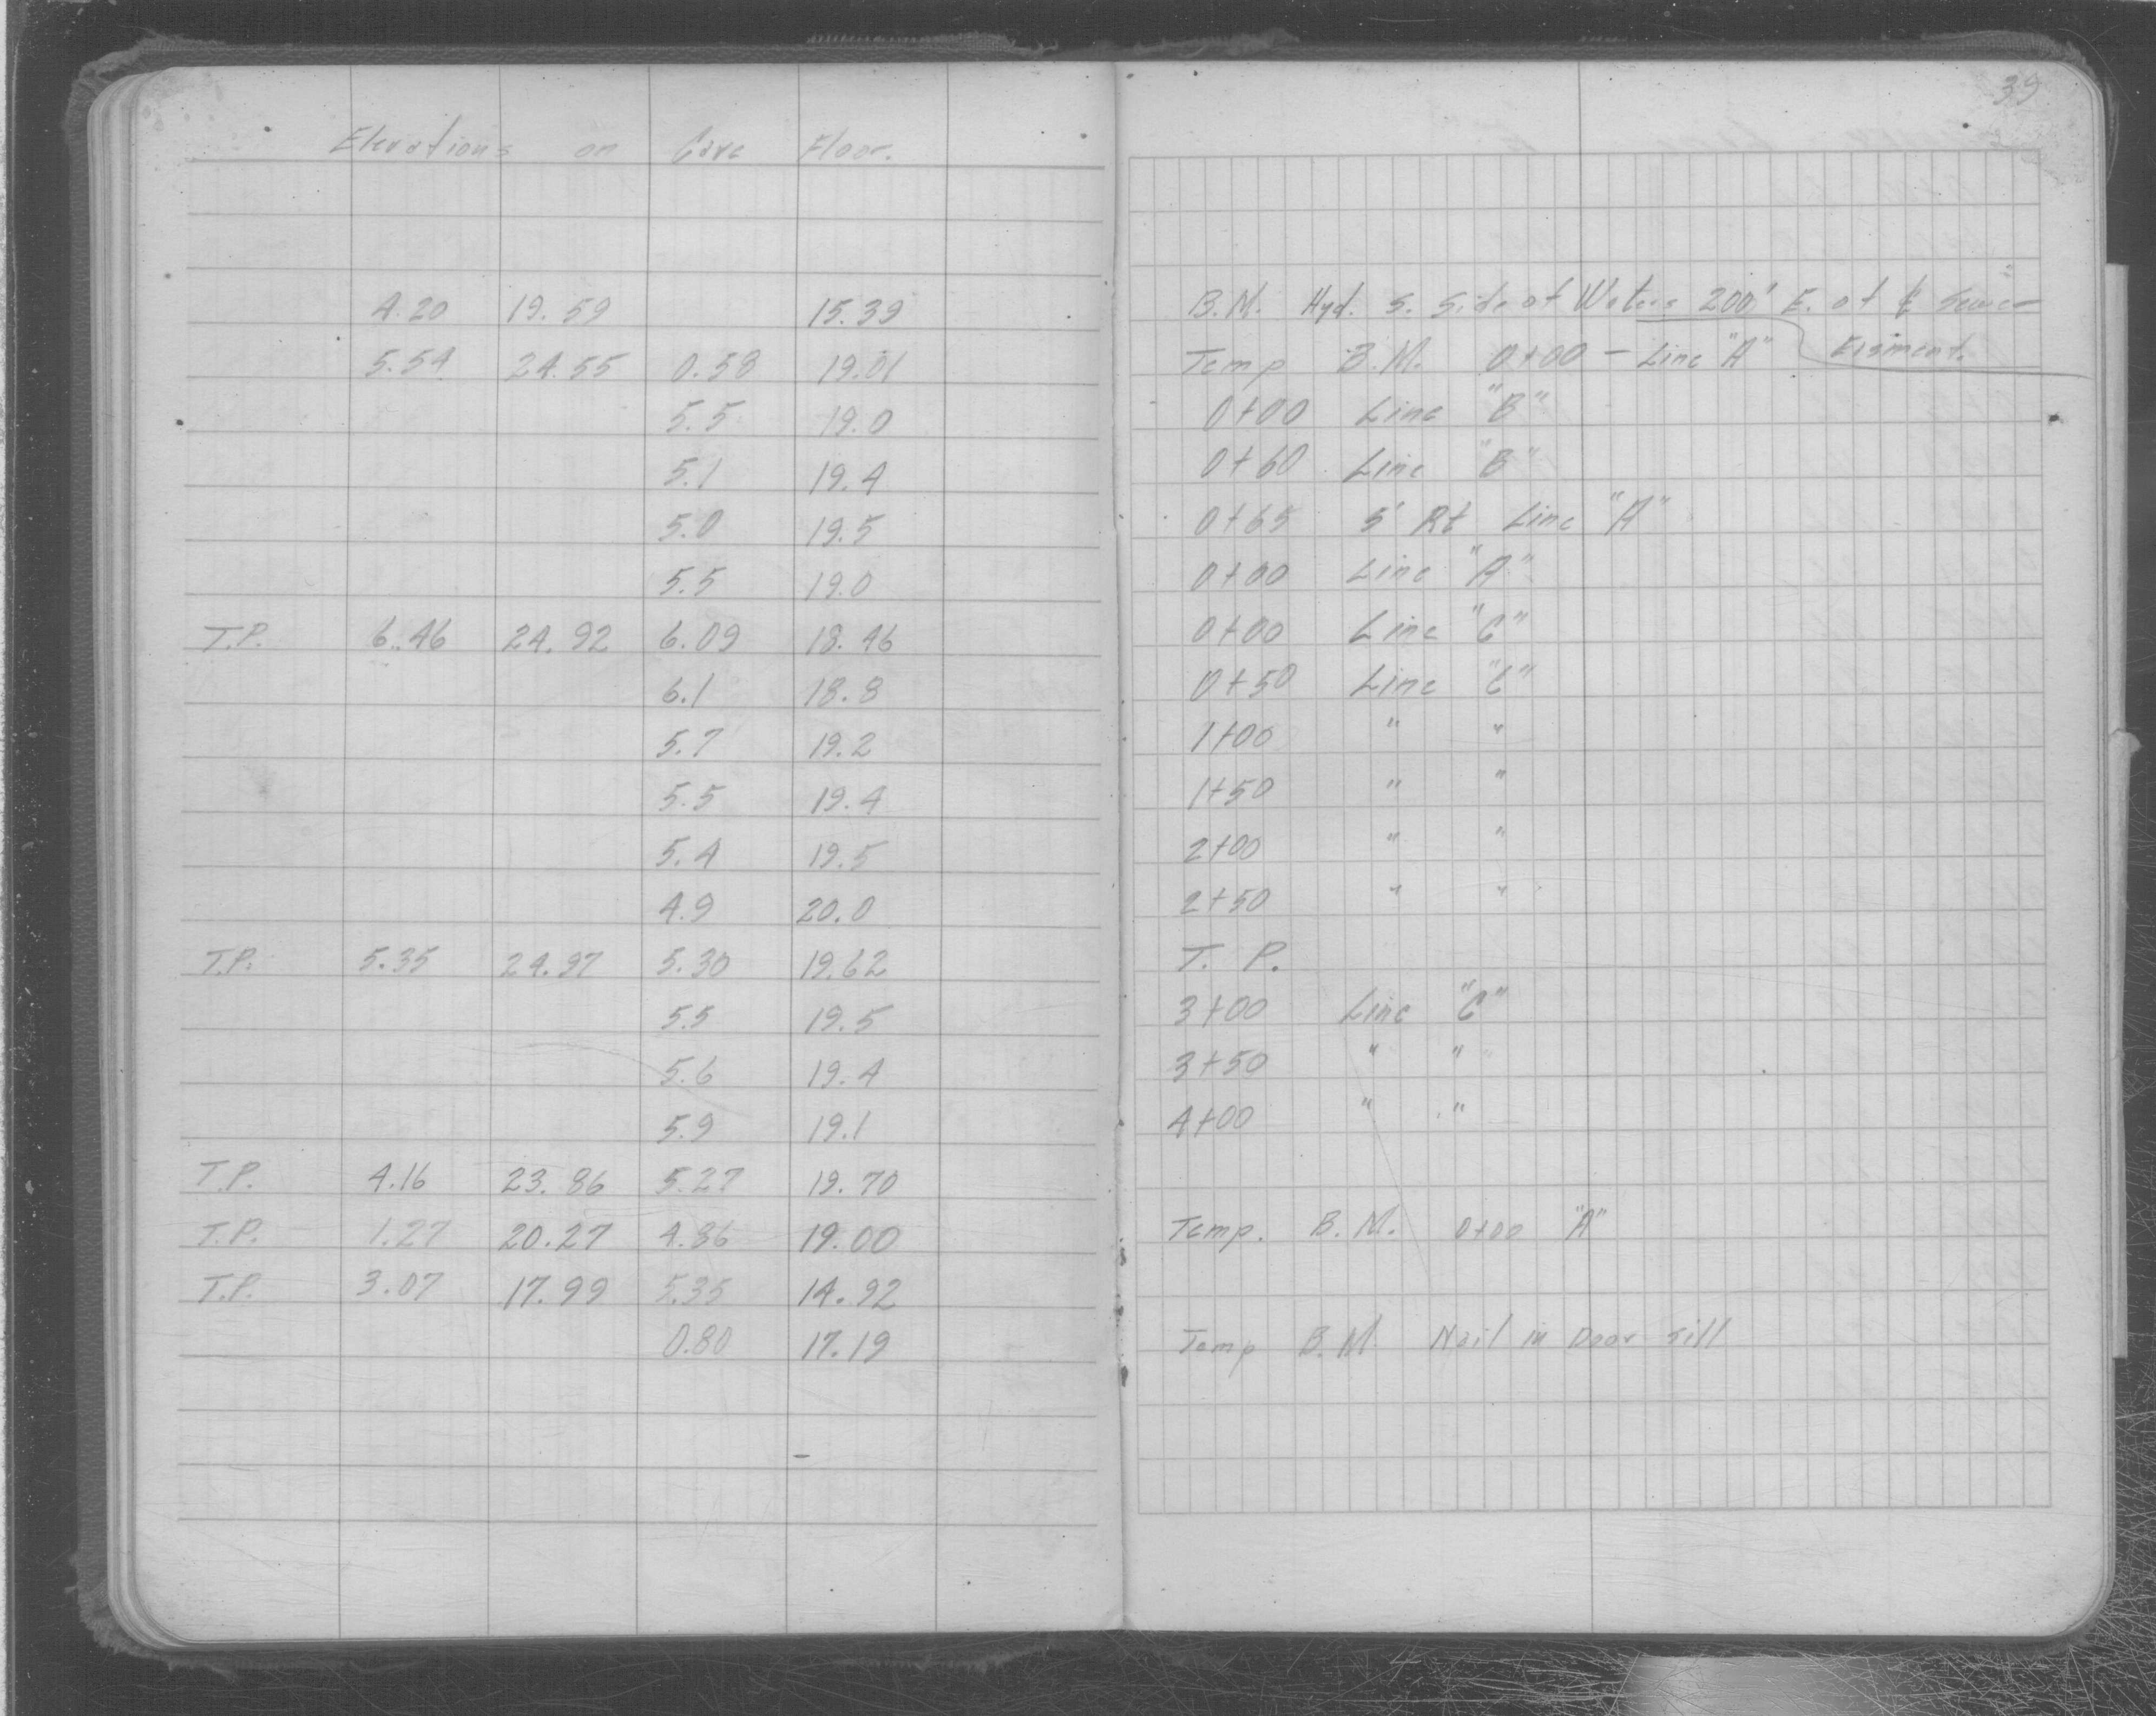 39
Elevations on Cave Floor.
4.20 19.59 15.39 B.M. Hyd. S. Side of Waters 200' E. of ℄ Sewer
5.54 24.55 0.58 19.01 Temp B.M. 0+00 - Line "A" Eisment.
5.5 19.0 0+00 Line "B"
5.1 19.4 0+60 Line "B"
5.0 19.5 0+65 5' Rt Line "A"
5.5 19.0 0+00 Line "A"
T.P. 6.46 24.92 6.09 18.46 0+00 Line "C"
6.1 18.8 0+50 Line "C"
5.7 19.2 1+00 " "
5.5 19.4 1+50 " "
5.4 19.5 2+00 " "
4.9 20.0 2+50 " "
T.P. 5.35 24.97 5.30 19.62 T. P.
5.5 19.5 3+00 Line "C"
5.6 19.4 3+50 " "
5.9 19.1 4+00 " "
T.P. 4.16 23.86 5.27 19.70
T.P. 1.27 20.27 4.86 19.00 Temp. B.M. 0+00 "A"
T.P. 3.07 17.99 5.35 14.92
0.80 17.19 Temp B.M. Nail in Door sill